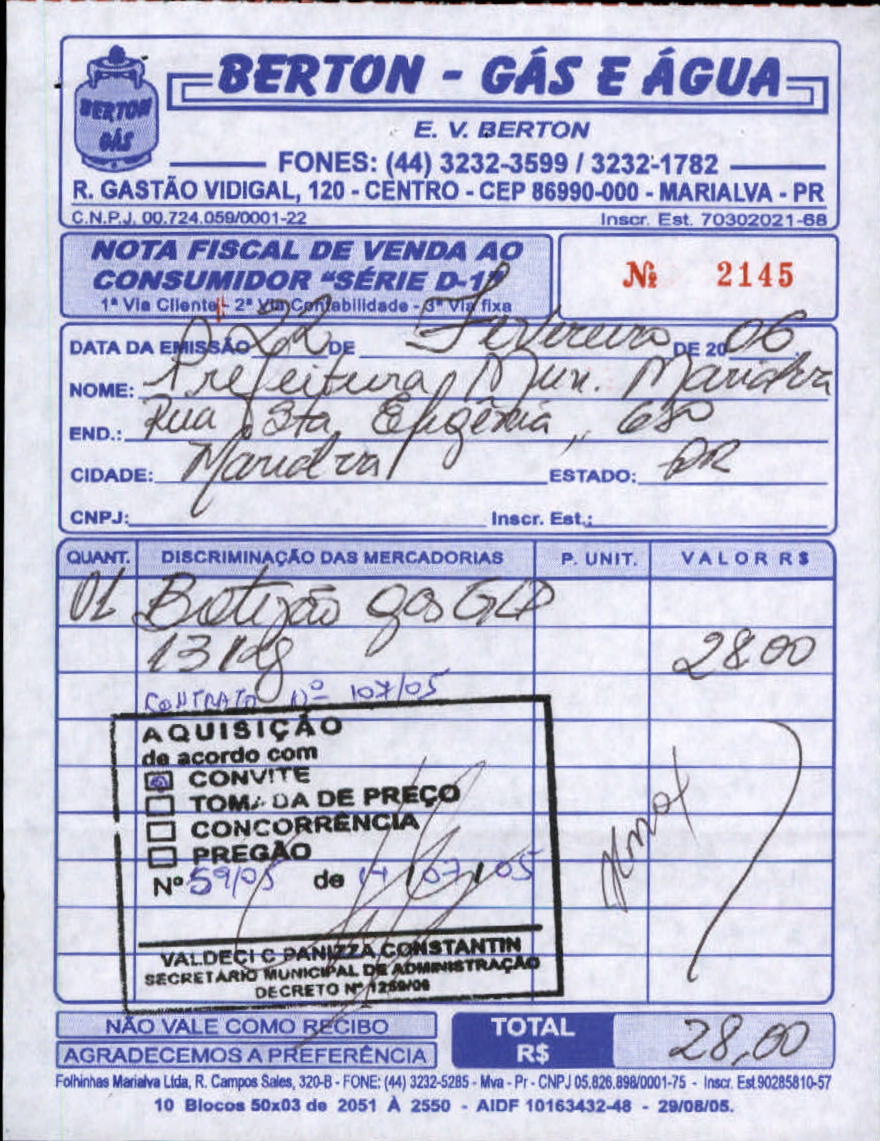 BERTON GÁS
BERTON - GÁS E ÁGUA
E. V. BERTON
FONES: (44) 3232-3599 / 3232-1782
R. GASTÃO VIDIGAL, 120 - CENTRO - CEP 86990-000 - MARIALVA - PR
C.N.P.J. 00.724.059/0001-22 Inscr. Est. 70302021-68
NOTA FISCAL DE VENDA AO
CONSUMIDOR "SÉRIE D-1"
1ª Via Cliente - 2ª Via Contabilidade - 3ª Via fixa
Nº 2145
DATA DA EMISSÃO 22 DE Fevereiro DE 2006
NOME: Prefeitura Mun. Marialva
END.: Rua Sta Efigênia, 680
CIDADE: Marialva ESTADO: PR
CNPJ: Inscr. Est.:
QUANT. DISCRIMINAÇÃO DAS MERCADORIAS P. UNIT. VALOR R$
01 Botijão gas GLP
13 Kg 28.00
CONTRATO Nº 107/05
AQUISIÇÃO
de acordo com
CONVITE
TOMADA DE PREÇO
CONCORRÊNCIA
PREGÃO
Nº 59/05 de 14/07/05
VALDECI C PANIZZA CONSTANTIN
SECRETARIO MUNICIPAL DE ADMINISTRAÇÃO
DECRETO Nº 1259/06
NÃO VALE COMO RECIBO
AGRADECEMOS A PREFERÊNCIA
TOTAL R$ 28,00
Folhinhas Marialva Ltda, R. Campos Sales, 320-B - FONE: (44) 3232-5285 - Mva - Pr - CNPJ 05.826.898/0001-75 - Inscr. Est.90285810-57
10 Blocos 50x03 de 2051 À 2550 - AIDF 10163432-48 - 29/08/05.